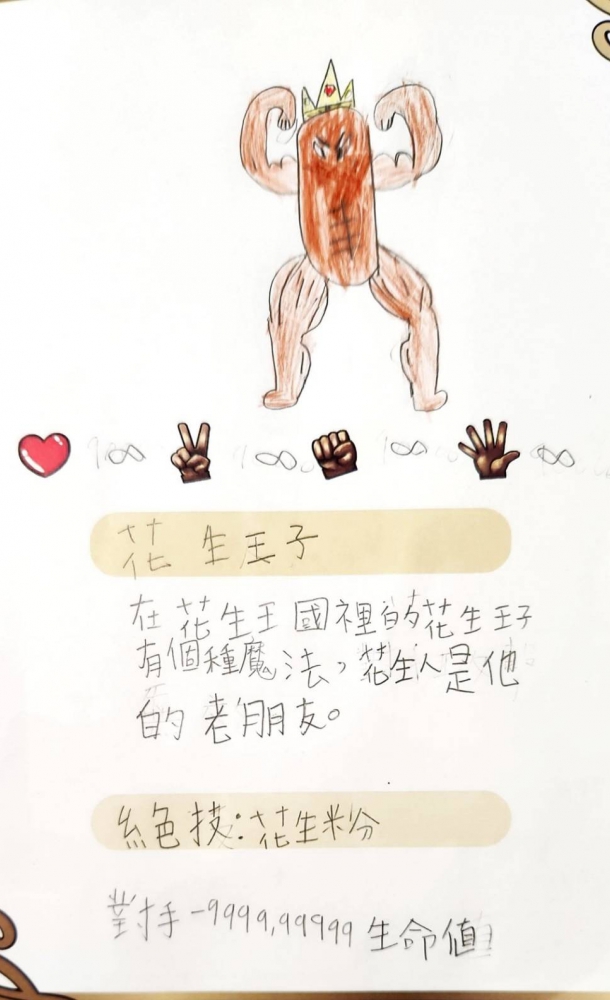 ∞ ∞ ∞ ∞
花生王子
在花生王國裡的花生王子
有個種魔法，花生人是他
的老朋友。
絕技：花生粉
對手-9999,99999生命值！